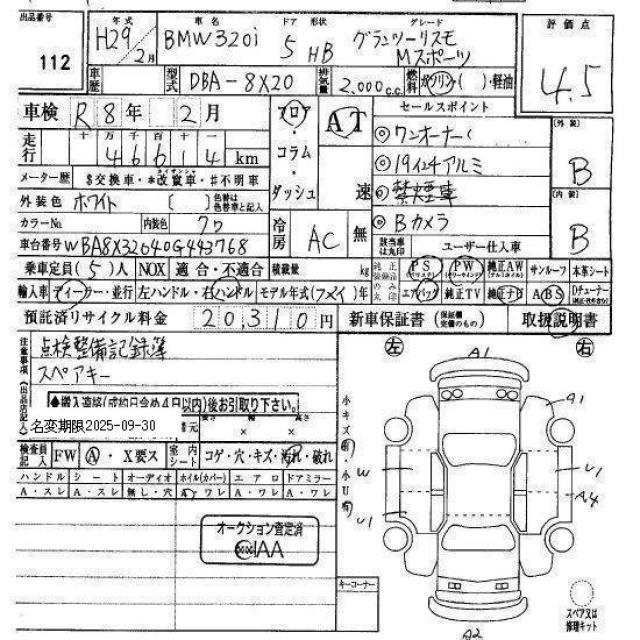 出品番号 112
年式 H29年 2月
車名 BMW320i
ドア 形状 5 HB
グレード グランツーリスモ Mスポーツ
評価点 4.5
車歴
型式 DBA-8X20
排気量 2,000c.c.
燃料 ガソリン( )・軽油
車検 R8年 2月
フロア・コラム・ダッシュ
AT 速
セールスポイント
◎ワンオーナー
◎19インチアルミ
◎禁煙車
◎Bカメラ
[外装] B
[内装] B
走行 十 万 千 百 十 一
46614 km
メーター歴 $交換車・*改竄車・#不明車
外装色 ホワイト ( ) 色替は色替車と記入
カラーNo. 内装色 クロ
冷房 AC 無
該当車は丸印 ユーザー仕入車
車台番号 WBA8X32040G443768
乗車定員(5)人 NOX 適合・不適合 積載量 kg
純正装備のみ丸印 PS PW 純正AW サンルーフ 本革シート
輸入車 ディーラー・並行 左ハンドル・右ハンドル モデル年式( )年
エアバック 純正TV 純正ナビ ABS Dチューナー
預託済リサイクル料金 20,310円 新車保証書 (保証欄完備のもの) 取扱説明書
注意事項(出品店記入)
点検整備記録簿
スペアキー
●搬入連絡(成約日含め4日以内)後お引取り下さい。
名変期限2025-09-30
長さ 幅 高さ
× ×
検査員記入 FW A・X要ス 室内シート コゲ・穴・キズ・汚れ・破れ
ハンドル シート オーディオ ホイル(カバー) エアロ ドアミラー
A・スレ A・スレ 無し・穴 A・ワレ A・ワレ A・ワレ
オークション査定済
JAAA
キーコーナー
左 右
A1
A1
小キズ有・小U有
W
U1
U1
A4
A2
スペア又は修理キット